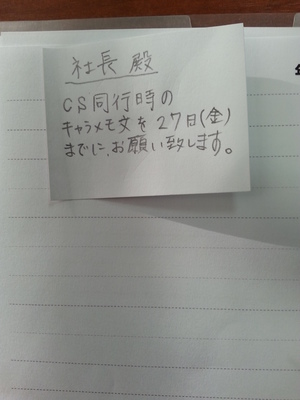 社長 殿
CS同行時の
キャラメモ文を27日(金)
までに、お願い致します。